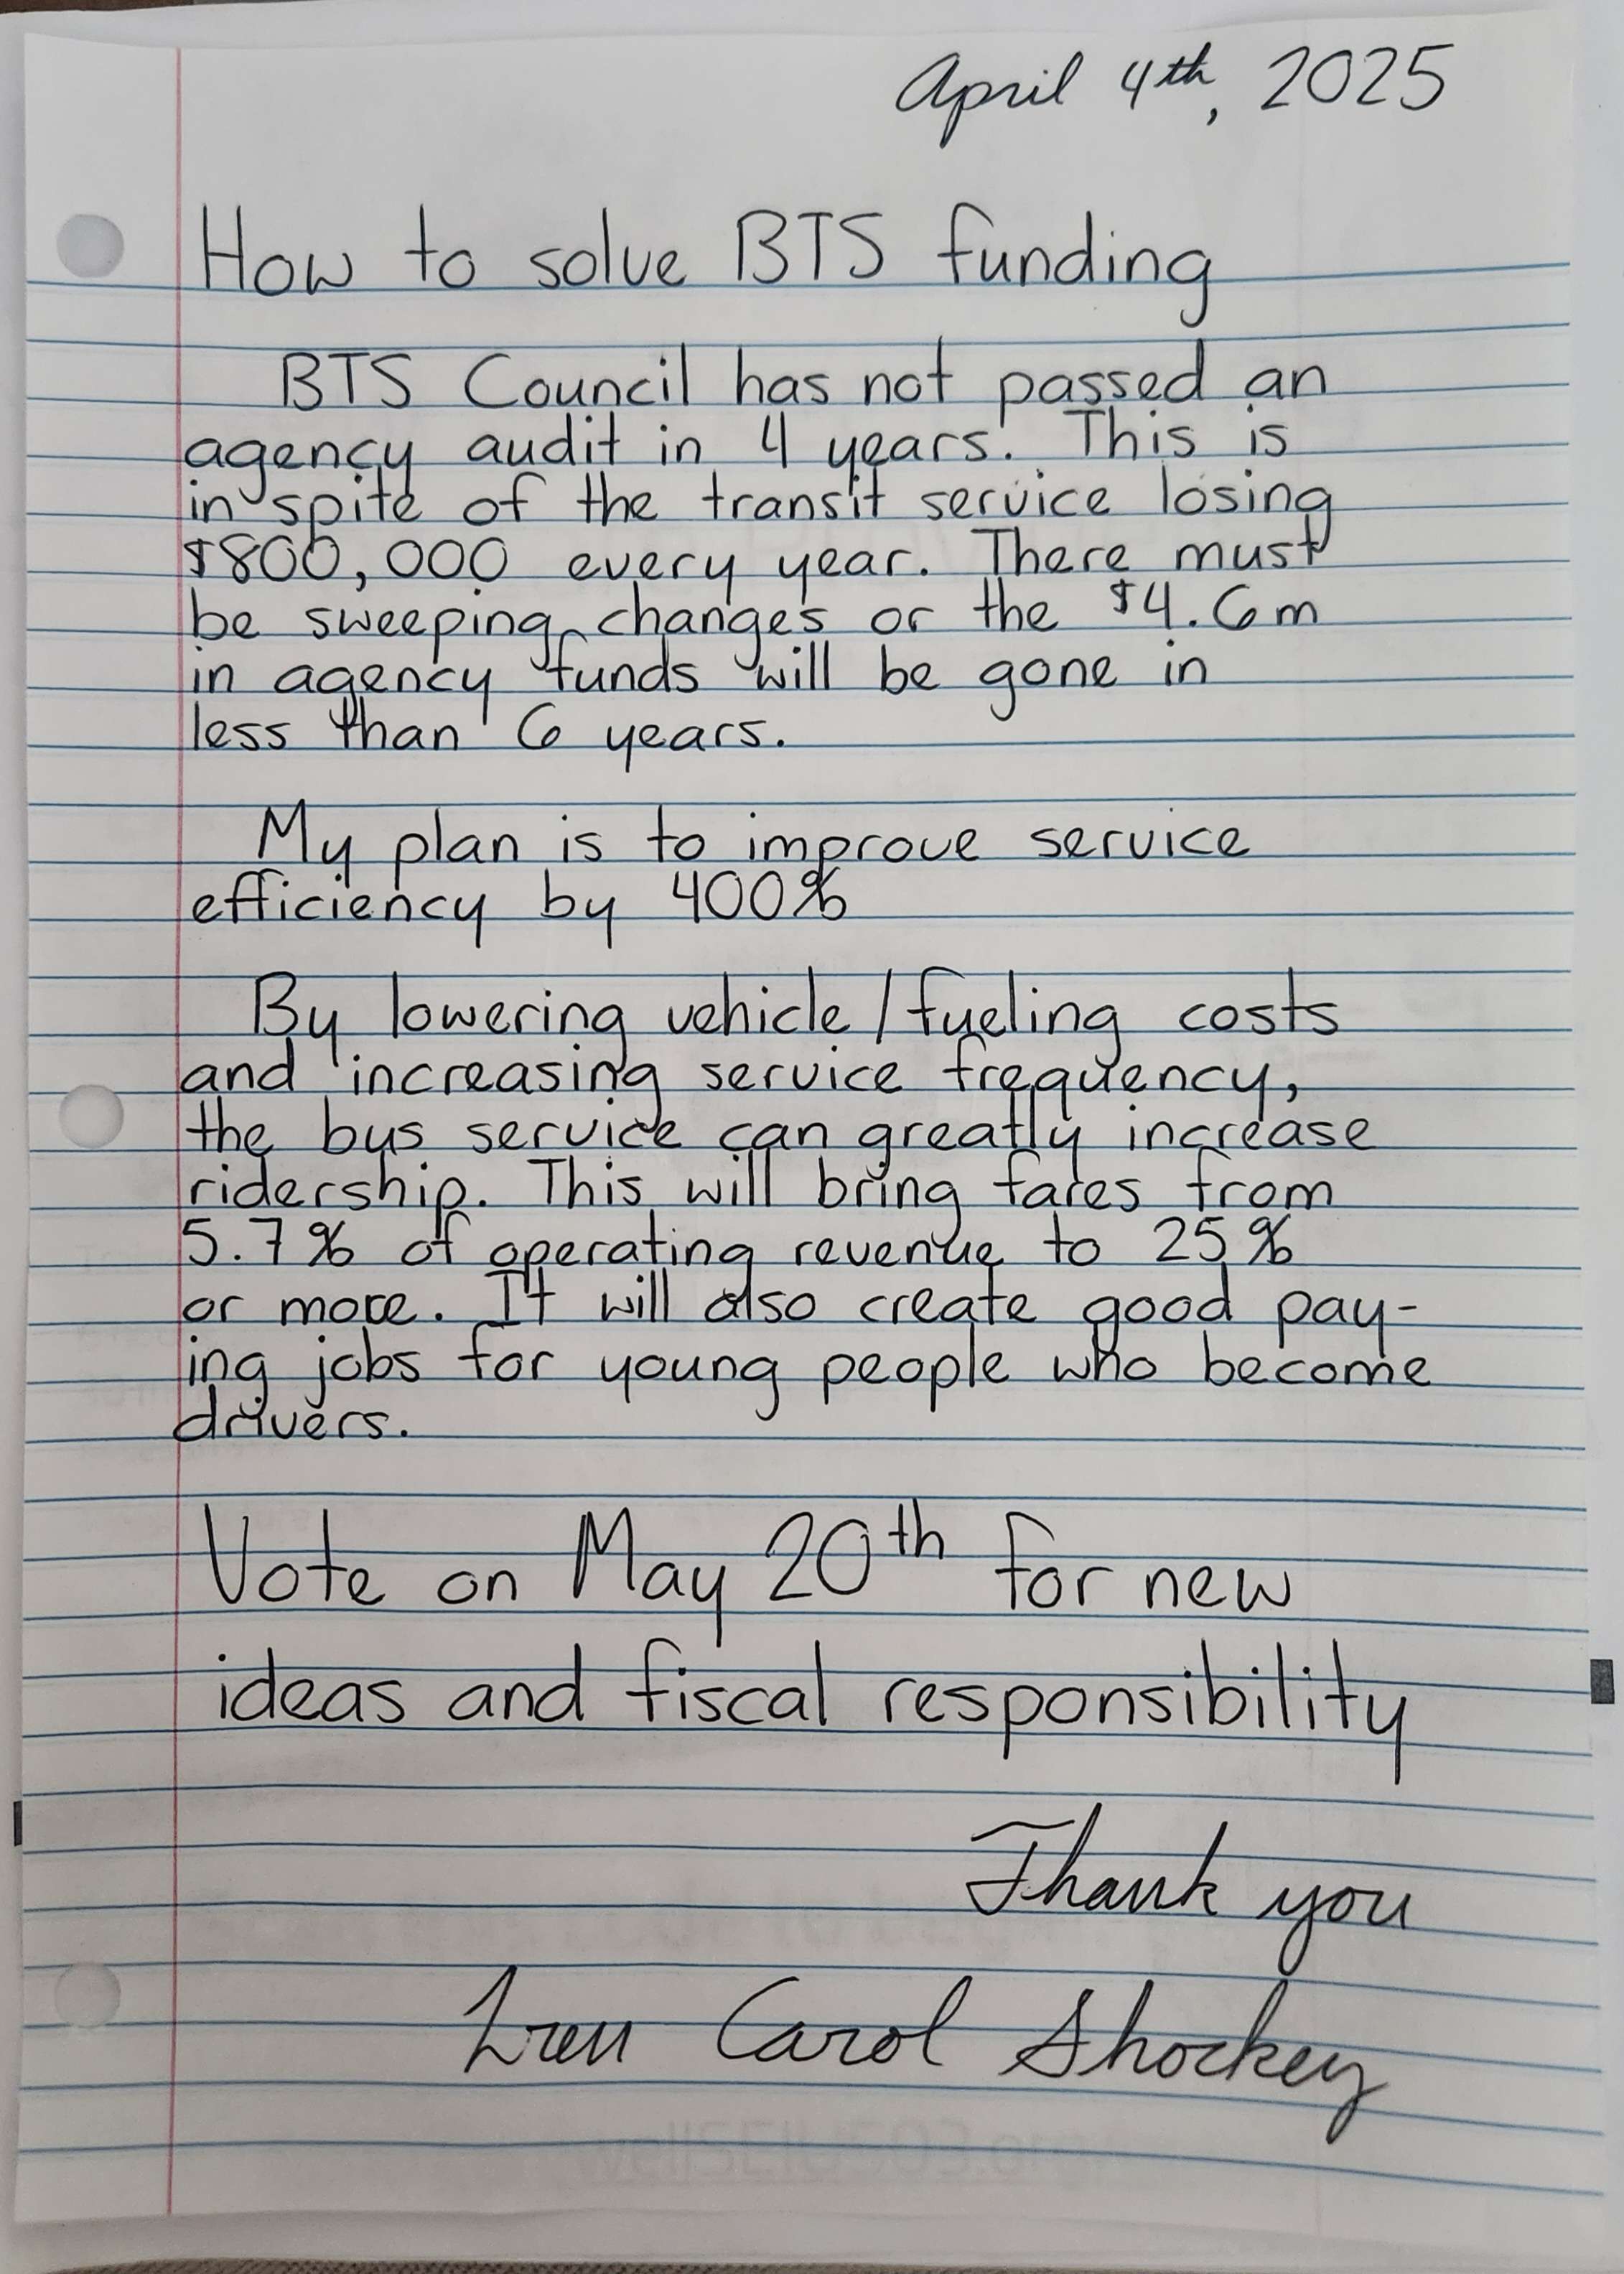 April 4th, 2025
How to solve BTS funding
BTS Council has not passed an
agency audit in 4 years. This is
in spite of the transit service losing
$800,000 every year. There must
be sweeping changes or the $4.6m
in agency funds will be gone in
less than 6 years.
My plan is to improve service
efficiency by 400%
By lowering vehicle/fueling costs
and increasing service frequency,
the bus service can greatly increase
ridership. This will bring fares from
5.7% of operating revenue to 25%
or more. It will also create good pay-
ing jobs for young people who become
drivers.
Vote on May 20th for new
ideas and fiscal responsibility
Thank you
Carol Shockey